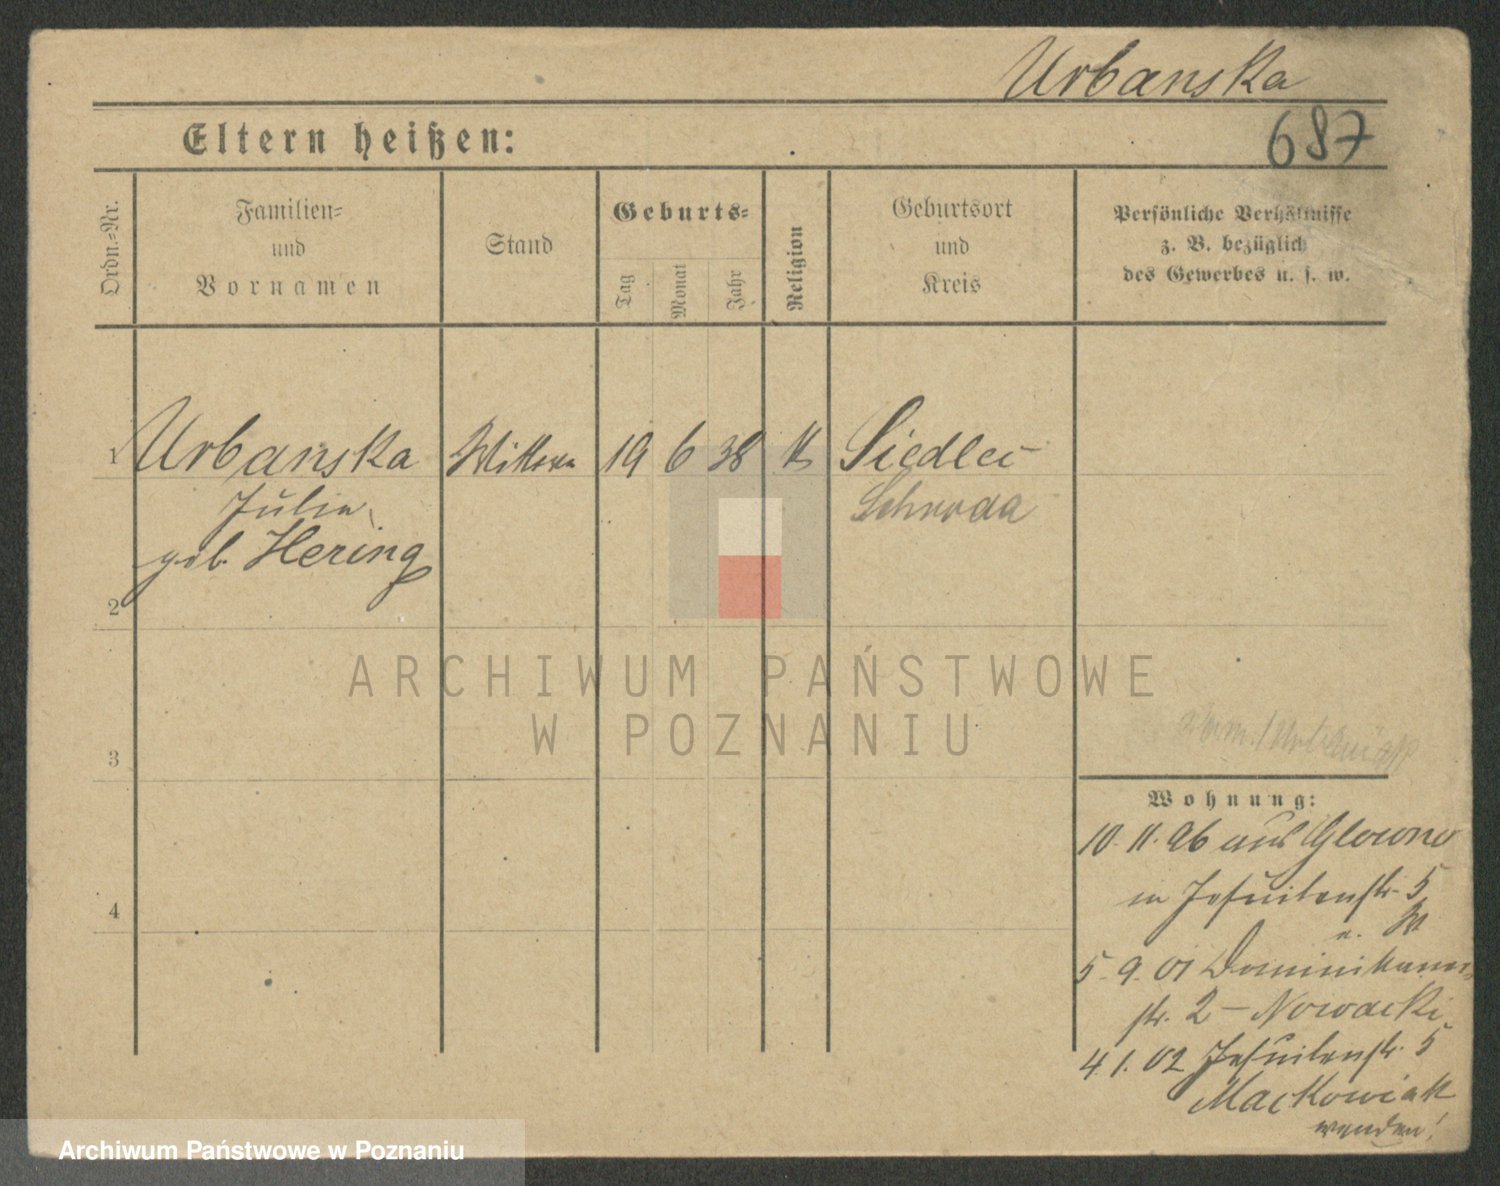 Urbanska
687
Eltern heißen:
Ordn.-Nr.
Familien-
und
Vornamen
Stand
Geburts-
Tag
Monat
Jahr
Religion
Geburtsort
und
Kreis
Persönliche Verhältnisse
z. B. bezüglich
des Gewerbes u. s. w.
1 Urbanska Wittwe 19 6 38 k Siedlec
Julie Schroda
geb. Hering
2
3
4
ARCHIWUM PAŃSTWOWE
W POZNANIU
Wohnung:
10. 11. 96 aus Glowno
in Jesuitenstr. 5
5. 9. 01 Dominikaner-
str. 2 – Nowacki
4. 1. 02 Jesuitenstr. 5
Mackowiak
wenden!
Archiwum Państwowe w Poznaniu